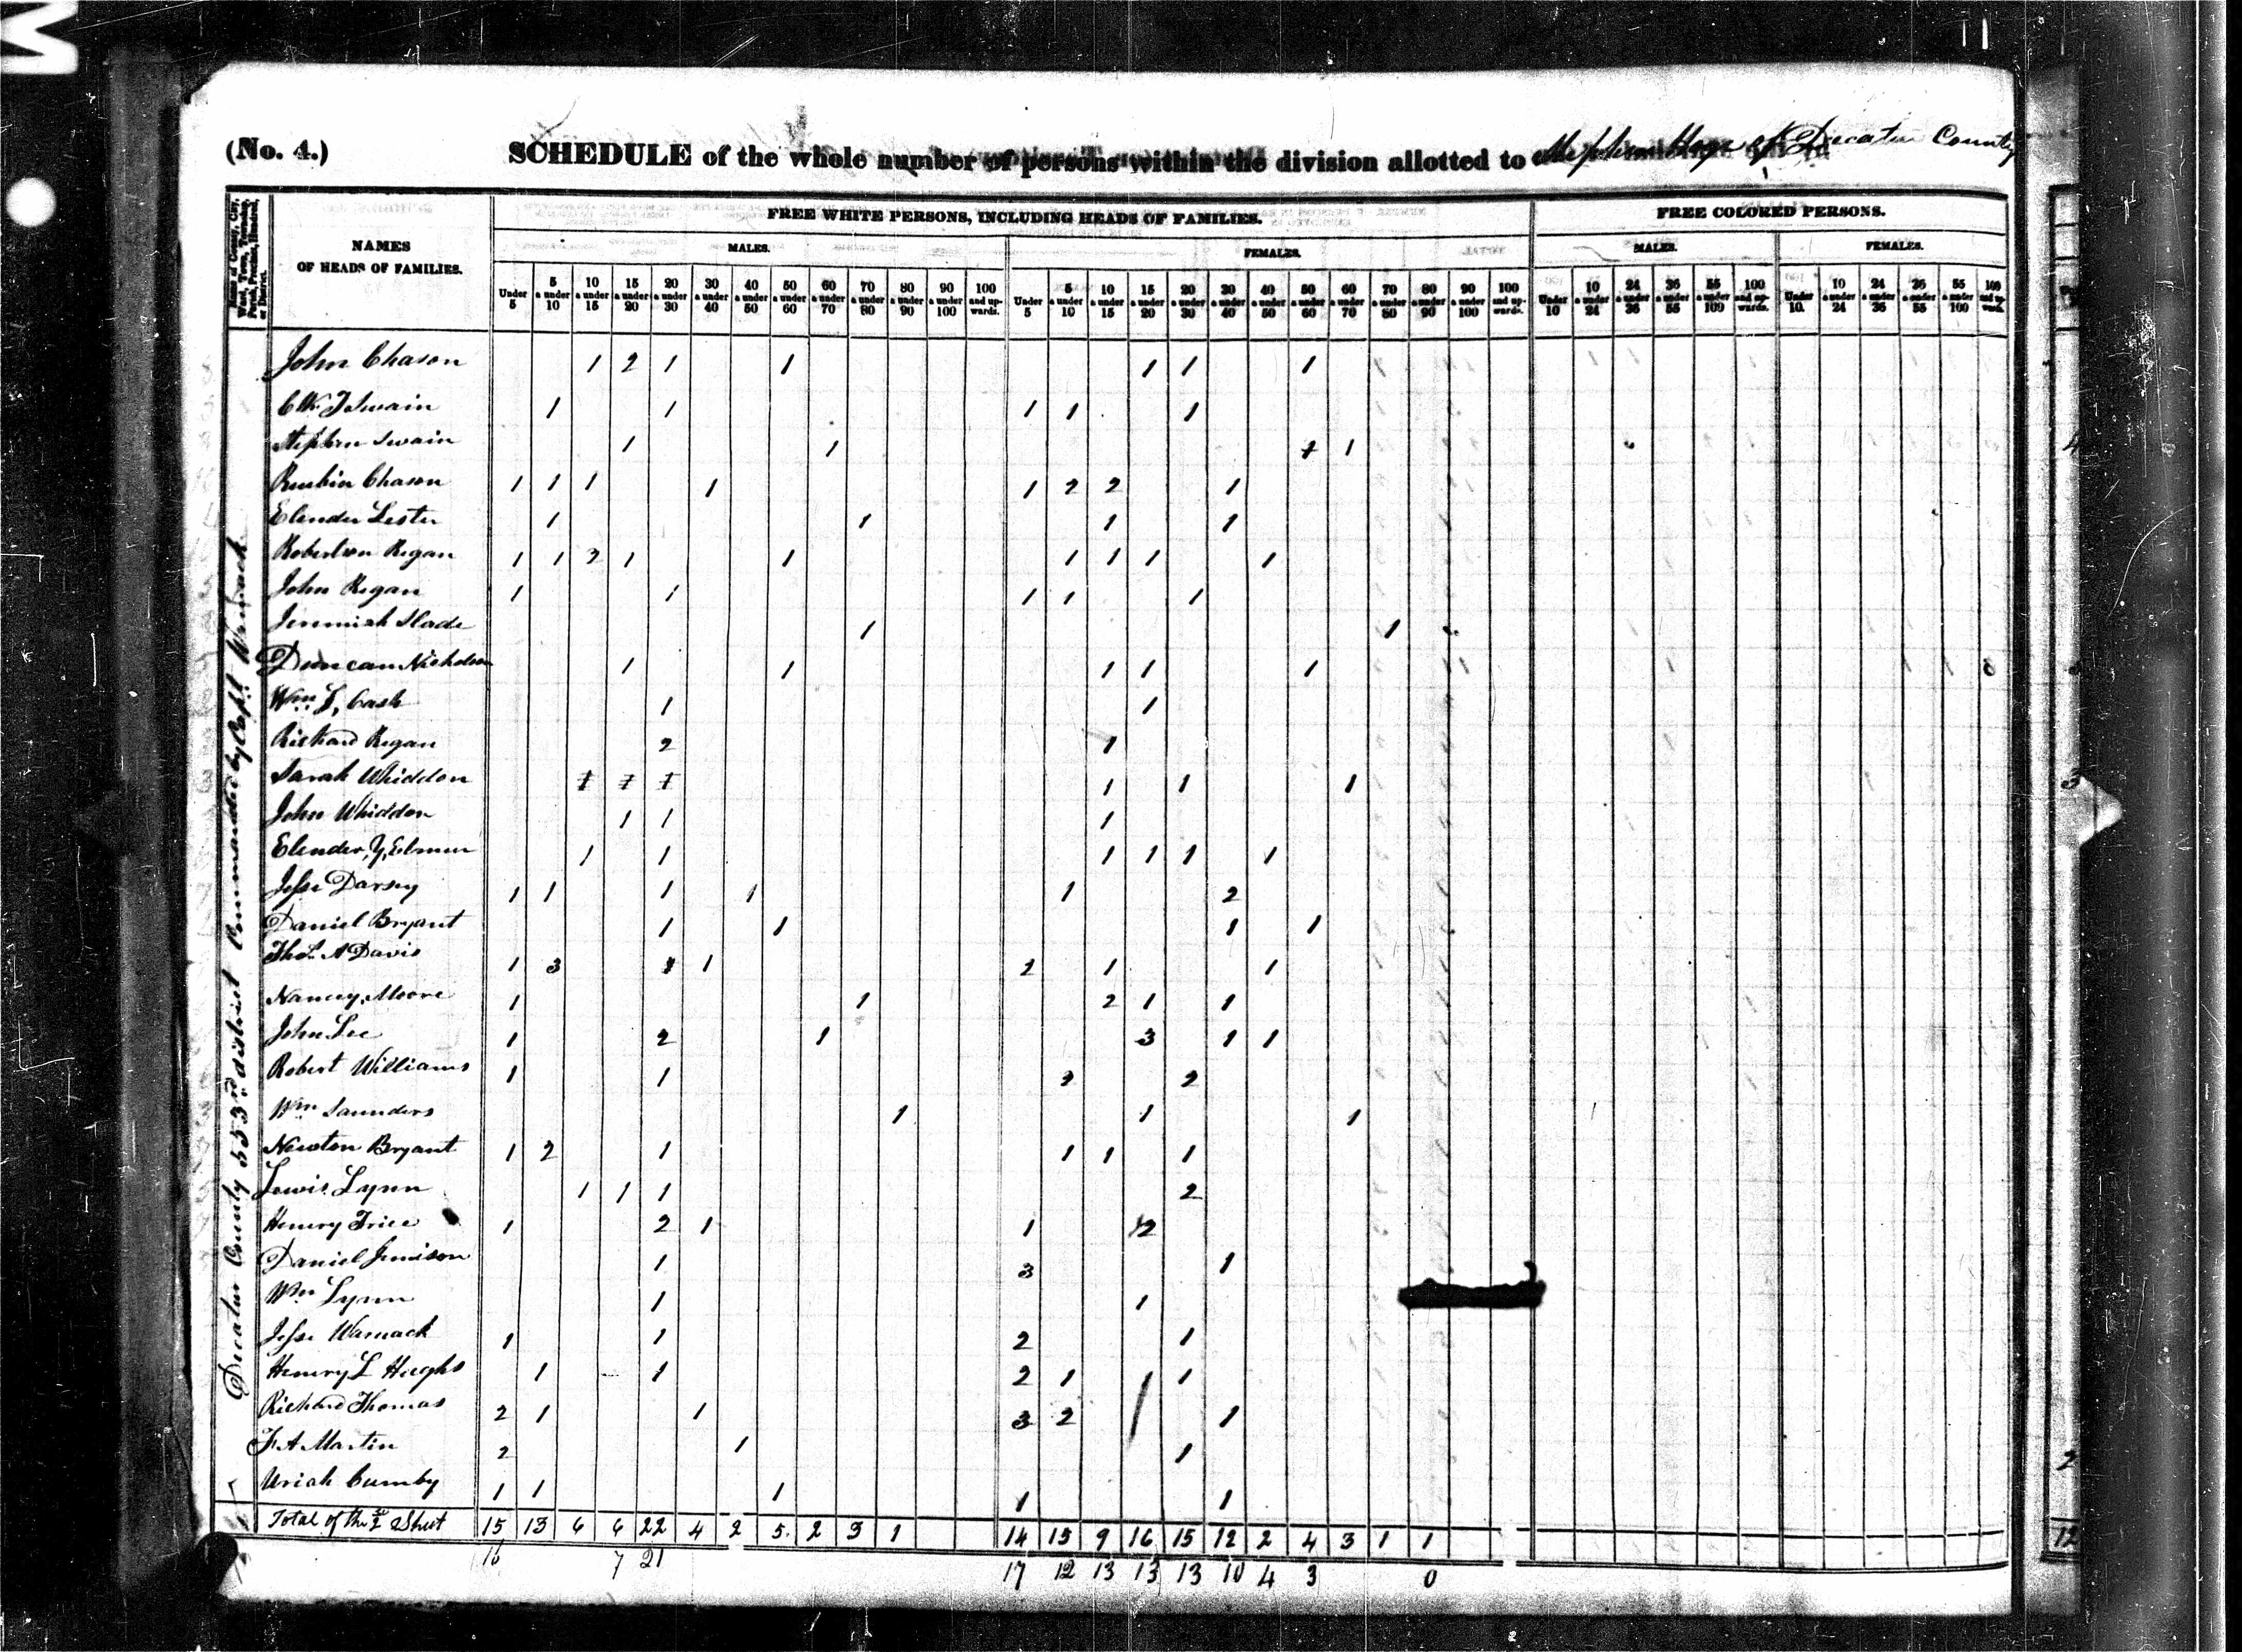 (No. 4.)
SCHEDULE of the whole number of persons within the division allotted to Stephen Hoge of Decatur County
Name of County, City, Ward, Town, Township, Parish, Precinct, Hundred, or District.
NAMES OF HEADS OF FAMILIES.
FREE WHITE PERSONS, INCLUDING HEADS OF FAMILIES.
FREE COLORED PERSONS.
MALES. FEMALES. MALES. FEMALES.
Under 5 | 5 & under 10 | 10 & under 15 | 15 & under 20 | 20 & under 30 | 30 & under 40 | 40 & under 50 | 50 & under 60 | 60 & under 70 | 70 & under 80 | 80 & under 90 | 90 & under 100 | 100 and upwards. | Under 5 | 5 & under 10 | 10 & under 15 | 15 & under 20 | 20 & under 30 | 30 & under 40 | 40 & under 50 | 50 & under 60 | 60 & under 70 | 70 & under 80 | 80 & under 90 | 90 & under 100 | 100 and upwards. | Under 10 | 10 & under 24 | 24 & under 36 | 36 & under 55 | 55 & under 100 | 100 and upwards. | Under 10. | 10 & under 24 | 24 & under 36 | 36 & under 55 | 55 & under 100 | 100 and upwards.
Decatur County 553rd district Commanded by Capt.
John Chason 1 2 1 1 1 1 1
Swain 1 1 1 1 1
Stephen Swain 1 1 1 1
Reubin Chason 1 1 1 1 1 2 2 1
Elender Lester 1 1 1 1
Robertson Regan 1 1 2 1 1 1 1 1 1
John Regan 1 1 1 1 1
Jeremiah Slade 1 1
Duncan Nicholson 1 1 1 1 1
Wm L, Cash 1 1
Richard Regan 2 1
Sarah Whiddon 1 1 1 1 1 1
John Whiddon 1 1 1
Elender, Y, 1 1 1 1 1 1
Jesse Darsey 1 1 1 1 1 2
Daniel Bryant 1 1 1 1
Thos. A Davis 1 3 1 1 2 1 1
Nancy, Moore 1 1 2 1 1
John Lee 1 2 1 3 1 1
Robert Williams 1 1 2 2
Wm Saunders 1 1 1
Newton Bryant 1 2 1 1 1 1
Lewis Lynn 1 1 1 2
Henry Trice 1 2 1 1 2
Daniel Jemison 1 3 1
Wm Lynn 1 1
Jesse Wamack 1 1 2 1
Henry L Hughs 1 1 2 1 1 1
Richard Thomas 2 1 1 3 2 1
F. A Martin 2 1 1
Uriah Cumby 1 1 1 1 1
Total of the 2 Sheet 15 13 6 6 22 4 2 5 2 3 1 14 15 9 16 15 12 2 4 3 1 1
16 7 21 17 12 13 13 13 10 4 3 0
4
3
2
12